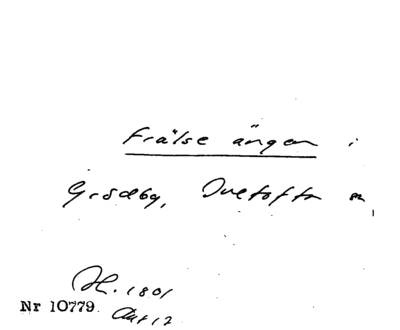 Frälse ängen i
Grödby, Ovetofta sn,
H. 1801
Nr 10779. Akt 12